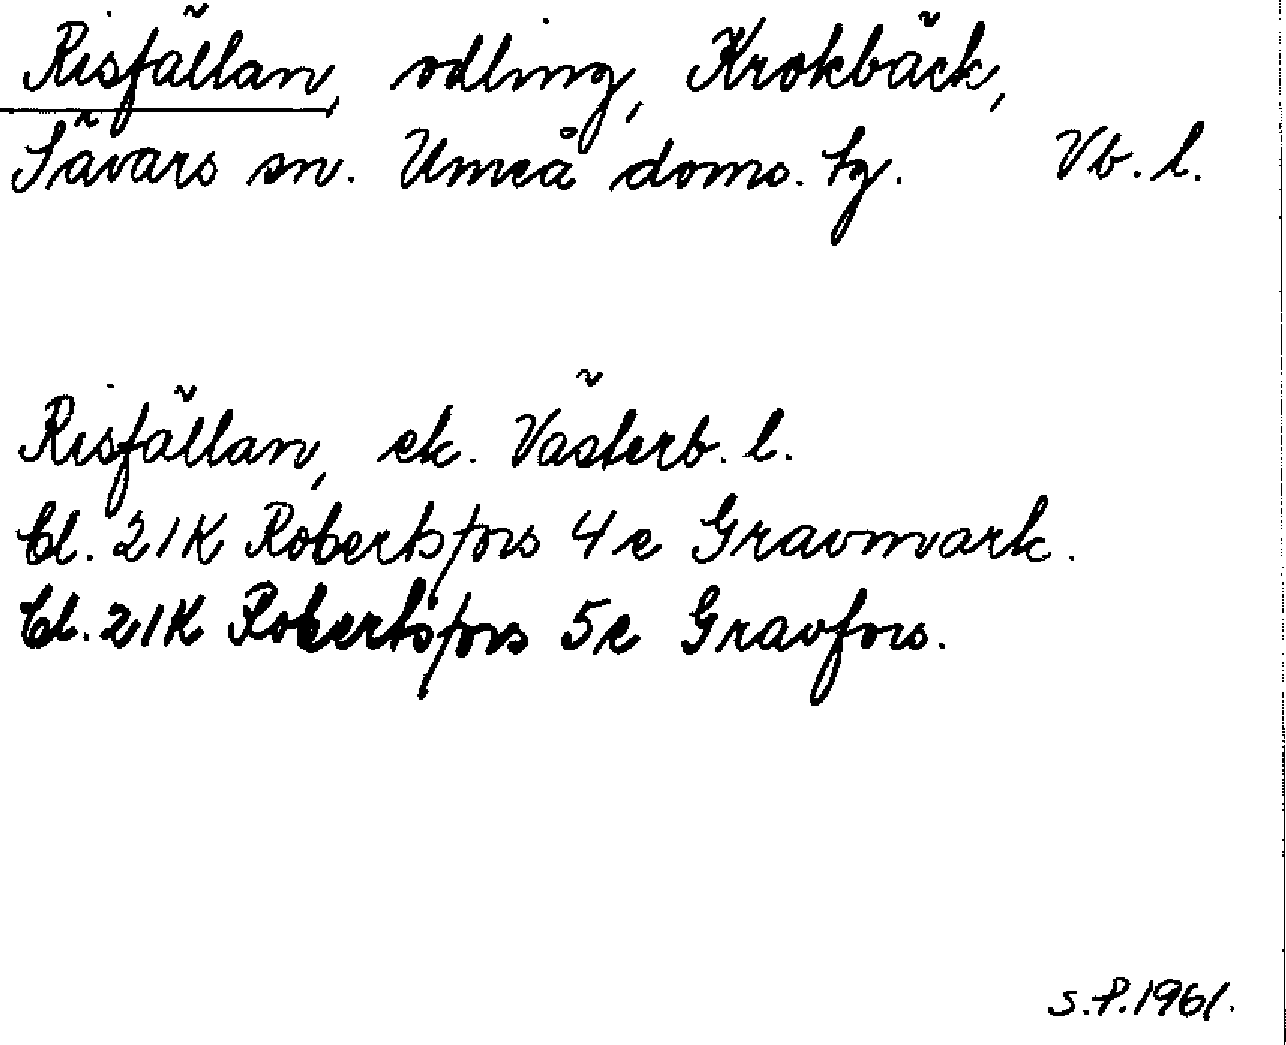 Risfällan, odling, Krokbäck,
Sävars sn. Umeå doms. tg. Vb. l.
Risfällan, ek. Västerb. l.
Bl. 21K Robertsfors 4e Gravmark.
Bl. 21K Robertsfors 5e Gravfors.
S.P. 1961.